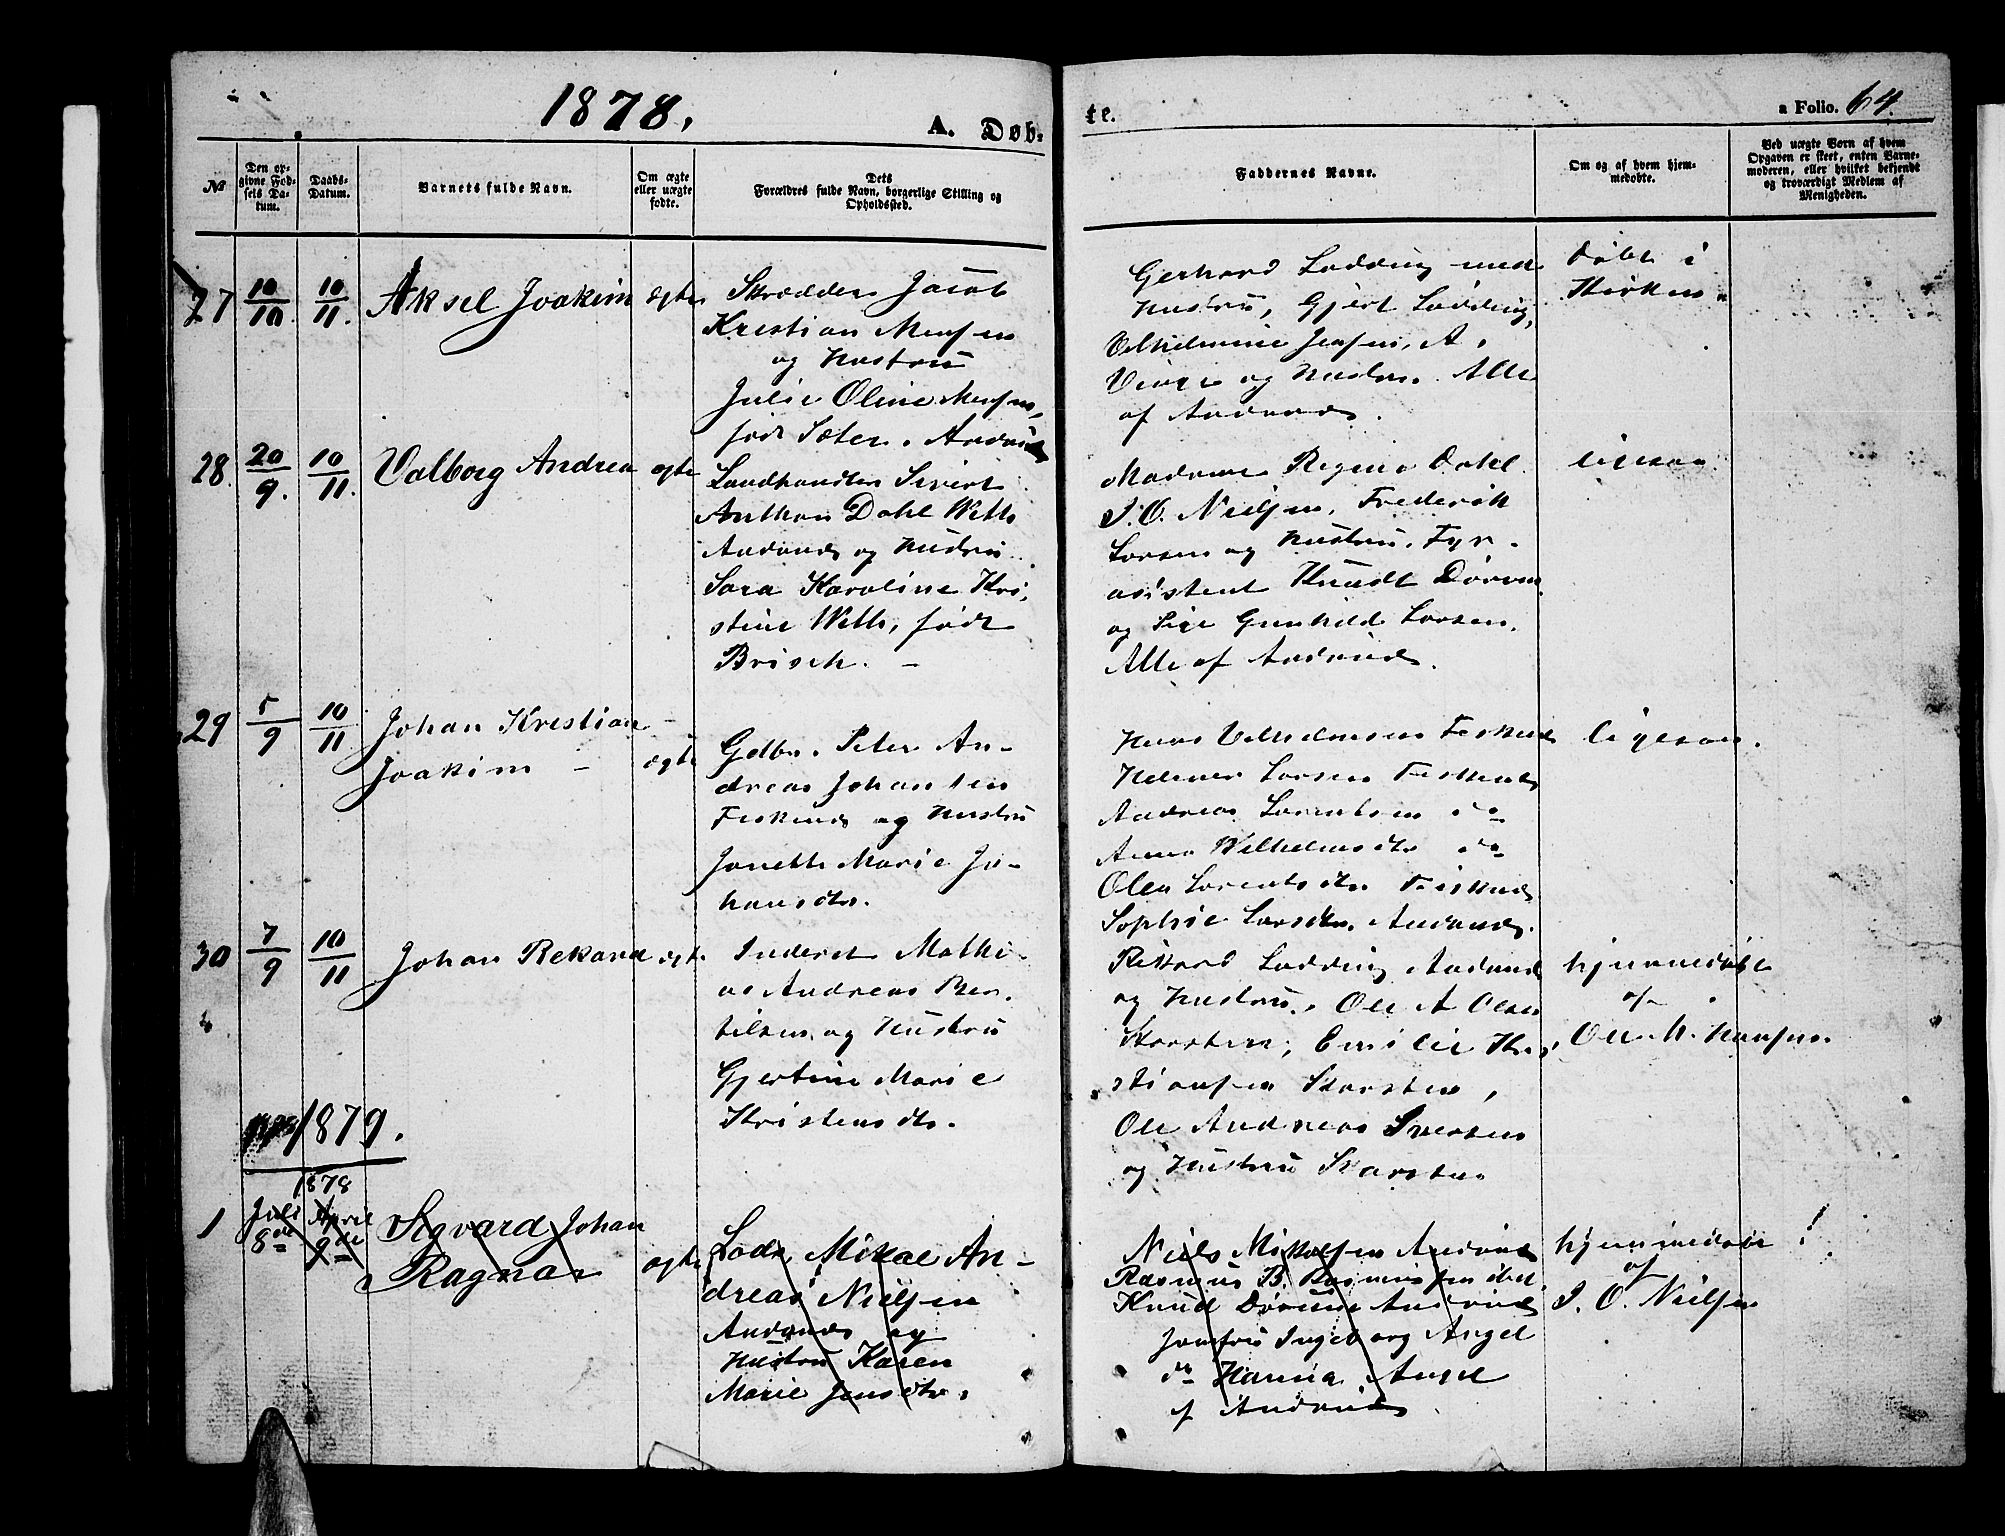 1878.
A. Døb-
te.
a Folio. 64.
№
Den op-
givne Fød-
sels Da-
tum.
Daabs-
Datum.
Barnets fulde Navn.
Om ægte
eller uægte
fødte.
Dets
Forældres fulde Navn, borgerlige Stilling og
Opholdssted.
Faddernes Navne.
Om og af hvem hjem-
medøbte.
Ved uægte Børn af hvem
Opgaven er skeet, enten Barne-
moderen, eller hvilket bekjendt
og troværdigt Medlem af
Menigheden.
27
10/10
10/11.
Aksel Joakim
ægte
Skrædder Jacob
Kristian
og Hustru
Julie Oline
født Sæter. Andenæs
Gerhard Lødding med
Hustru, Gjert Lødding,
Vilhelmine Jensen, A.
og Hustru. Alle
af Andenæs.
Døbt i
Kirken
28.
20/9.
10/11.
Valborg Andrea
ægte
Landhandler Sivert
Anthon Dahl Weth
Andenæs og Hustru
Sara Karoline Kri-
stine Weth, født
Brisch. -
Madame Regine Dahl
I. O. Nielsen, Frederik
Larsen og Hustru. Fyr-
asistent Knudt
og Gunhild Larsen.
Alle af Andenæs.
ligesaa
29
5/9
10/11
Johan Kristian
Joakim -
ægte
Gdbr. Peter An-
dreas Johansen
Fiskenæs og Hustru
Janeth Marie Jo-
hansdtr.
Hans Vilhelmsen Fiskenæs
Helmer Larsen Fiskenæs
Andreas Lorentsen do
Anna Wilhelmsdtr do
Olea Lorentsdtr Fiskenæs
Sophie Larsdtr. Andenæs.
ligesaa.
30
7/9
10/11
Johan Rekard
ægte
Inderst Mathi-
as Andreas Ber-
tilsen og Hustru
Gjertine Marie
Kristensdtr.
Rikard Lødding Andenæs
og Hustru. Ole A Olsen
Skarsten, Emilie Kri-
stiansen Skarsten,
Ole Andreas Iversen
og Hustru Skarsten
hjemmedøbt
af
Ole M. Hansen.
1879.
1878
1
Juli
8de
April
9de
Sigvard Johan
Ragnar
ægte
Lods Mikael An-
dreas Nielsen
Andenæs og
Hustru Karen
Marie Jensdtr.
Niels Mikalsen Andenæs
Rasmus B. Rasmussen ibd
Knud Andenæs
Jomfru Ingeborg Angel
do Hanna Angel
af Andenæs
hjemmedøbt !
af
I. O. Nielsen